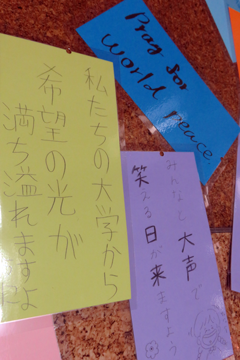 Pray for
World Peace
私たちの大学から
希望の光が
満ち溢れますよ
みんなで大声で
笑える日が来ますよう